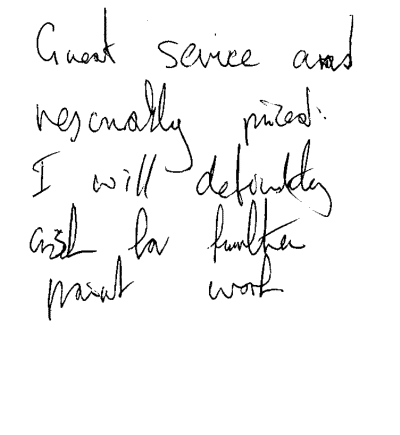 Great service and
resonably priced.
I will definitely
ask for further
paint work